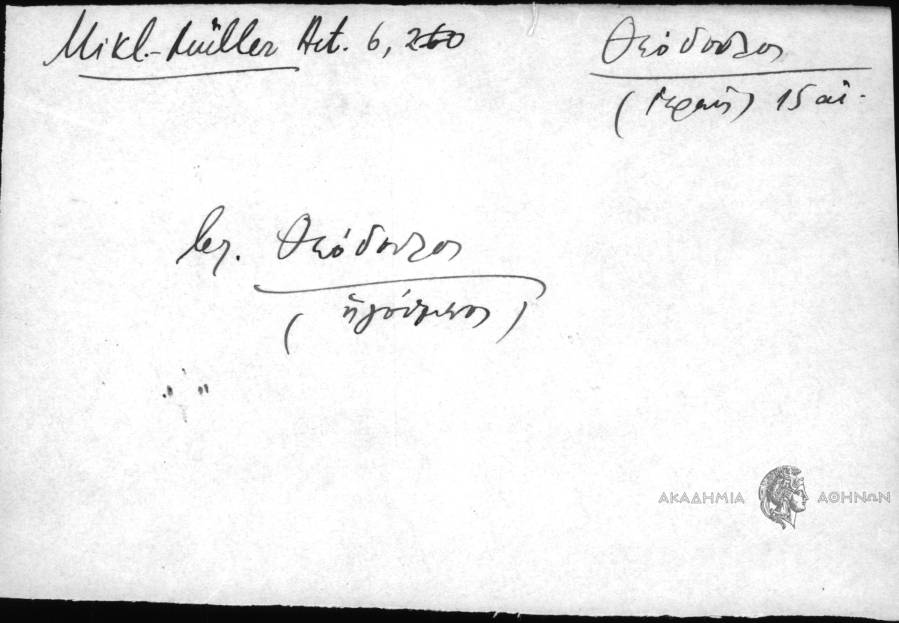 Mikl.-Müller Act. 6, 260
Θεόδουλος
(ἱερεὺς) 15 αἰ.
βλ. Θεόδουλος
(ἡγούμενος)
ΑΚΑΔΗΜΙΑ ΑΘΗΝΩΝ